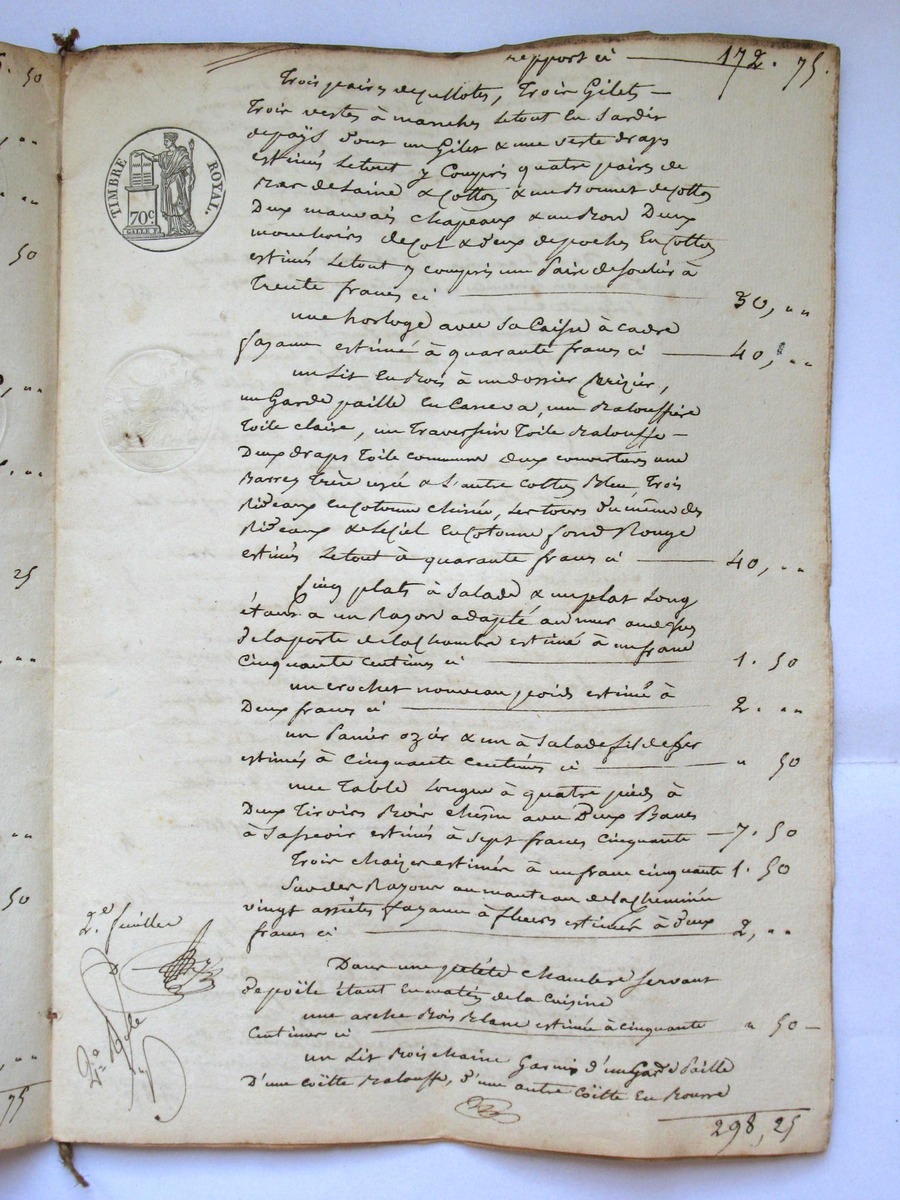 50
50
25
50
75
TIMBRE ROYAL.
70c.
report ci 172. 75.
Trois pairs de culottes, Trois Gilets
Trois vestes à manches Le tout En Sardis
de païs dont un Gilet & une veste draps
estimés Le tout y Compris quatre pairs de
Bas de Laine & Cotton & un Bonnet de Cotton
Deux mauvais Chapeaux & un Bon Deux
mouchoirs de Col & deux de poches En Cotton
estimés Le tout y compris une Paire de Soulier à
Trente francs ci 30, ""
une horloge avec Sa Caisse à cadre
fayance estimé à quarante francs ci 40, ""
un Lit En Bois à un dossier Cerizier,
un Garde paille En Caneva, une Balouffière
Toile claire, un Traversin Toile Balouffe
Deux draps Toile commune Deux couvertures une
Barrez Trère uzée & L'autre Cotton Bleu, Trois
Rideaux En Cotonne chinée, Les tours d'u même des
Rideaux & Le Ciel En Cotonne fond Rouge
estimés Le tout à quarante francs ci 40, ""
Cinq plats à Salade & un plat Long
étans a un Rayon adapté au mur au dessus
de la porte de la Chambre estimé à un franc
Cinquante Centimes ci 1. 50
un crochet nouveau poids estimé à
Deux francs ci 2. ""
un Panier ozier & un à Salade fil de fer
estimés à Cinquante Centimes ci " 50
une Table Longue à quatre pieds à
Deux Tiroirs Bois chêne avec Deux Bancs
à S'asseoir estimés à Sept francs Cinquante 7. 50
Trois chaizes estimée à un franc cinquante 1. 50
Sur des Rayons au manteau de la Cheminée
vingt assietes fayance à fleurs estimées à deux
francs ci 2, ""
Dans une petite Chambre Servant
de poële étant En matés de la Cuisine
une arche Bois Blanc estimée à cinquante
Centimes ci " 50
un Lit Bois chaine Garnis d'un Gard Paille
D'une Coëtte Balouffe, d'une autre Coëtte En Bourre
298, 25
2e. feuillet
2e Role